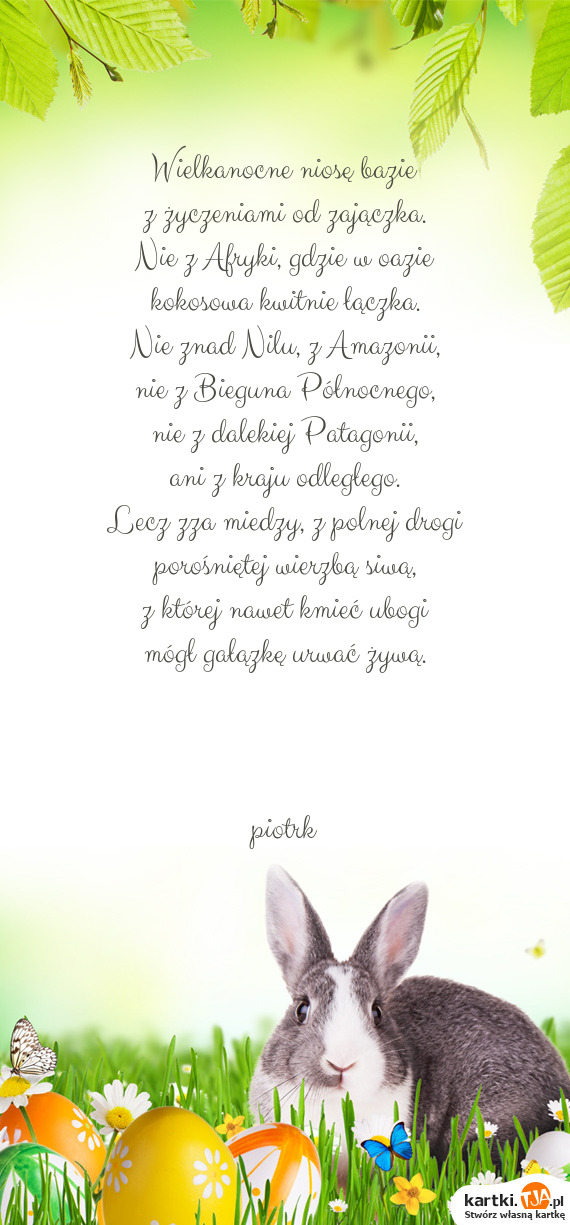 Wielkanocne niosę bazie
z życzeniami od zajączka.
Nie z Afryki, gdzie w oazie
kokosowa kwitnie łączka.
Nie znad Nilu, z Amazonii,
nie z Bieguna Północnego,
nie z dalekiej Patagonii,
ani z kraju odległego.
Lecz zza miedzy, z polnej drogi
porośniętej wierzbą siwą,
z której nawet kmieć ubogi
mógł gałązkę urwać żywą.
piotrk
kartki.TJA.pl
Stwórz własną kartkę